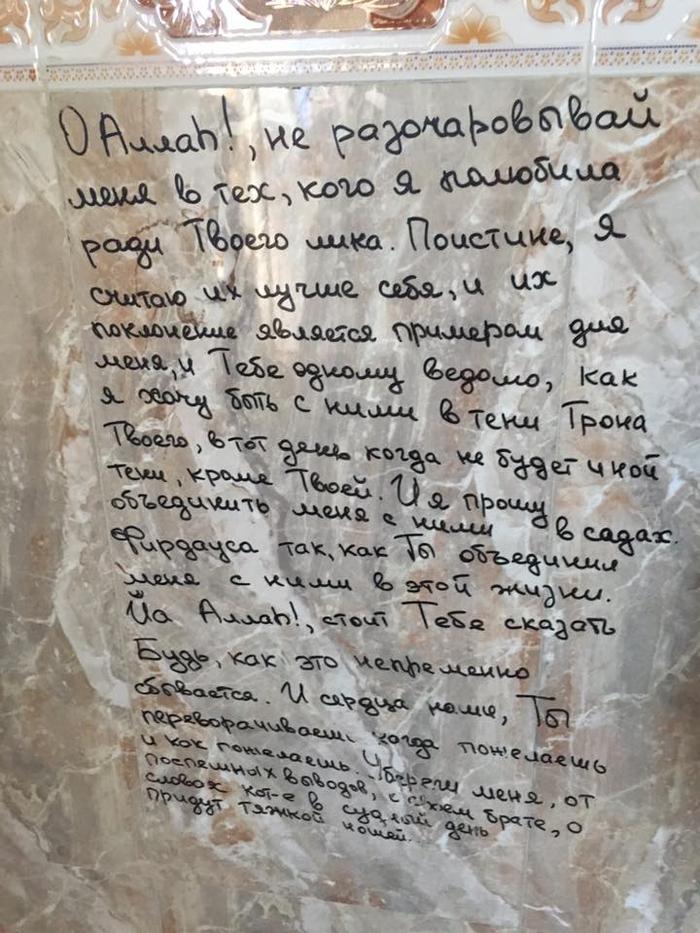 О Аллаh!, не разочаровывай
меня в тех, кого я полюбила
ради Твоего лика. Поистине, я
считаю их лучше себя, и их
поклонение является примером для
меня, и Тебе одному ведомо, как
я хочу быть с ними в тени Трона
Твоего, в тот день когда не будет иной
тени, кроме Твоей. И я прошу
объединить меня с ними в садах
Фирдауса так, как Ты объединил
меня с ними в этой жизни.
Йа Аллаh!, стоит Тебе сказать
Будь, как это непременно
сбывается. И сердца наши, Ты
переворачиваешь когда пожелаешь
и как пожелаешь. Убереги меня, от
поспешных выводов, с брате, о
словах кот-е в судный день
придут тяжкой ношей.